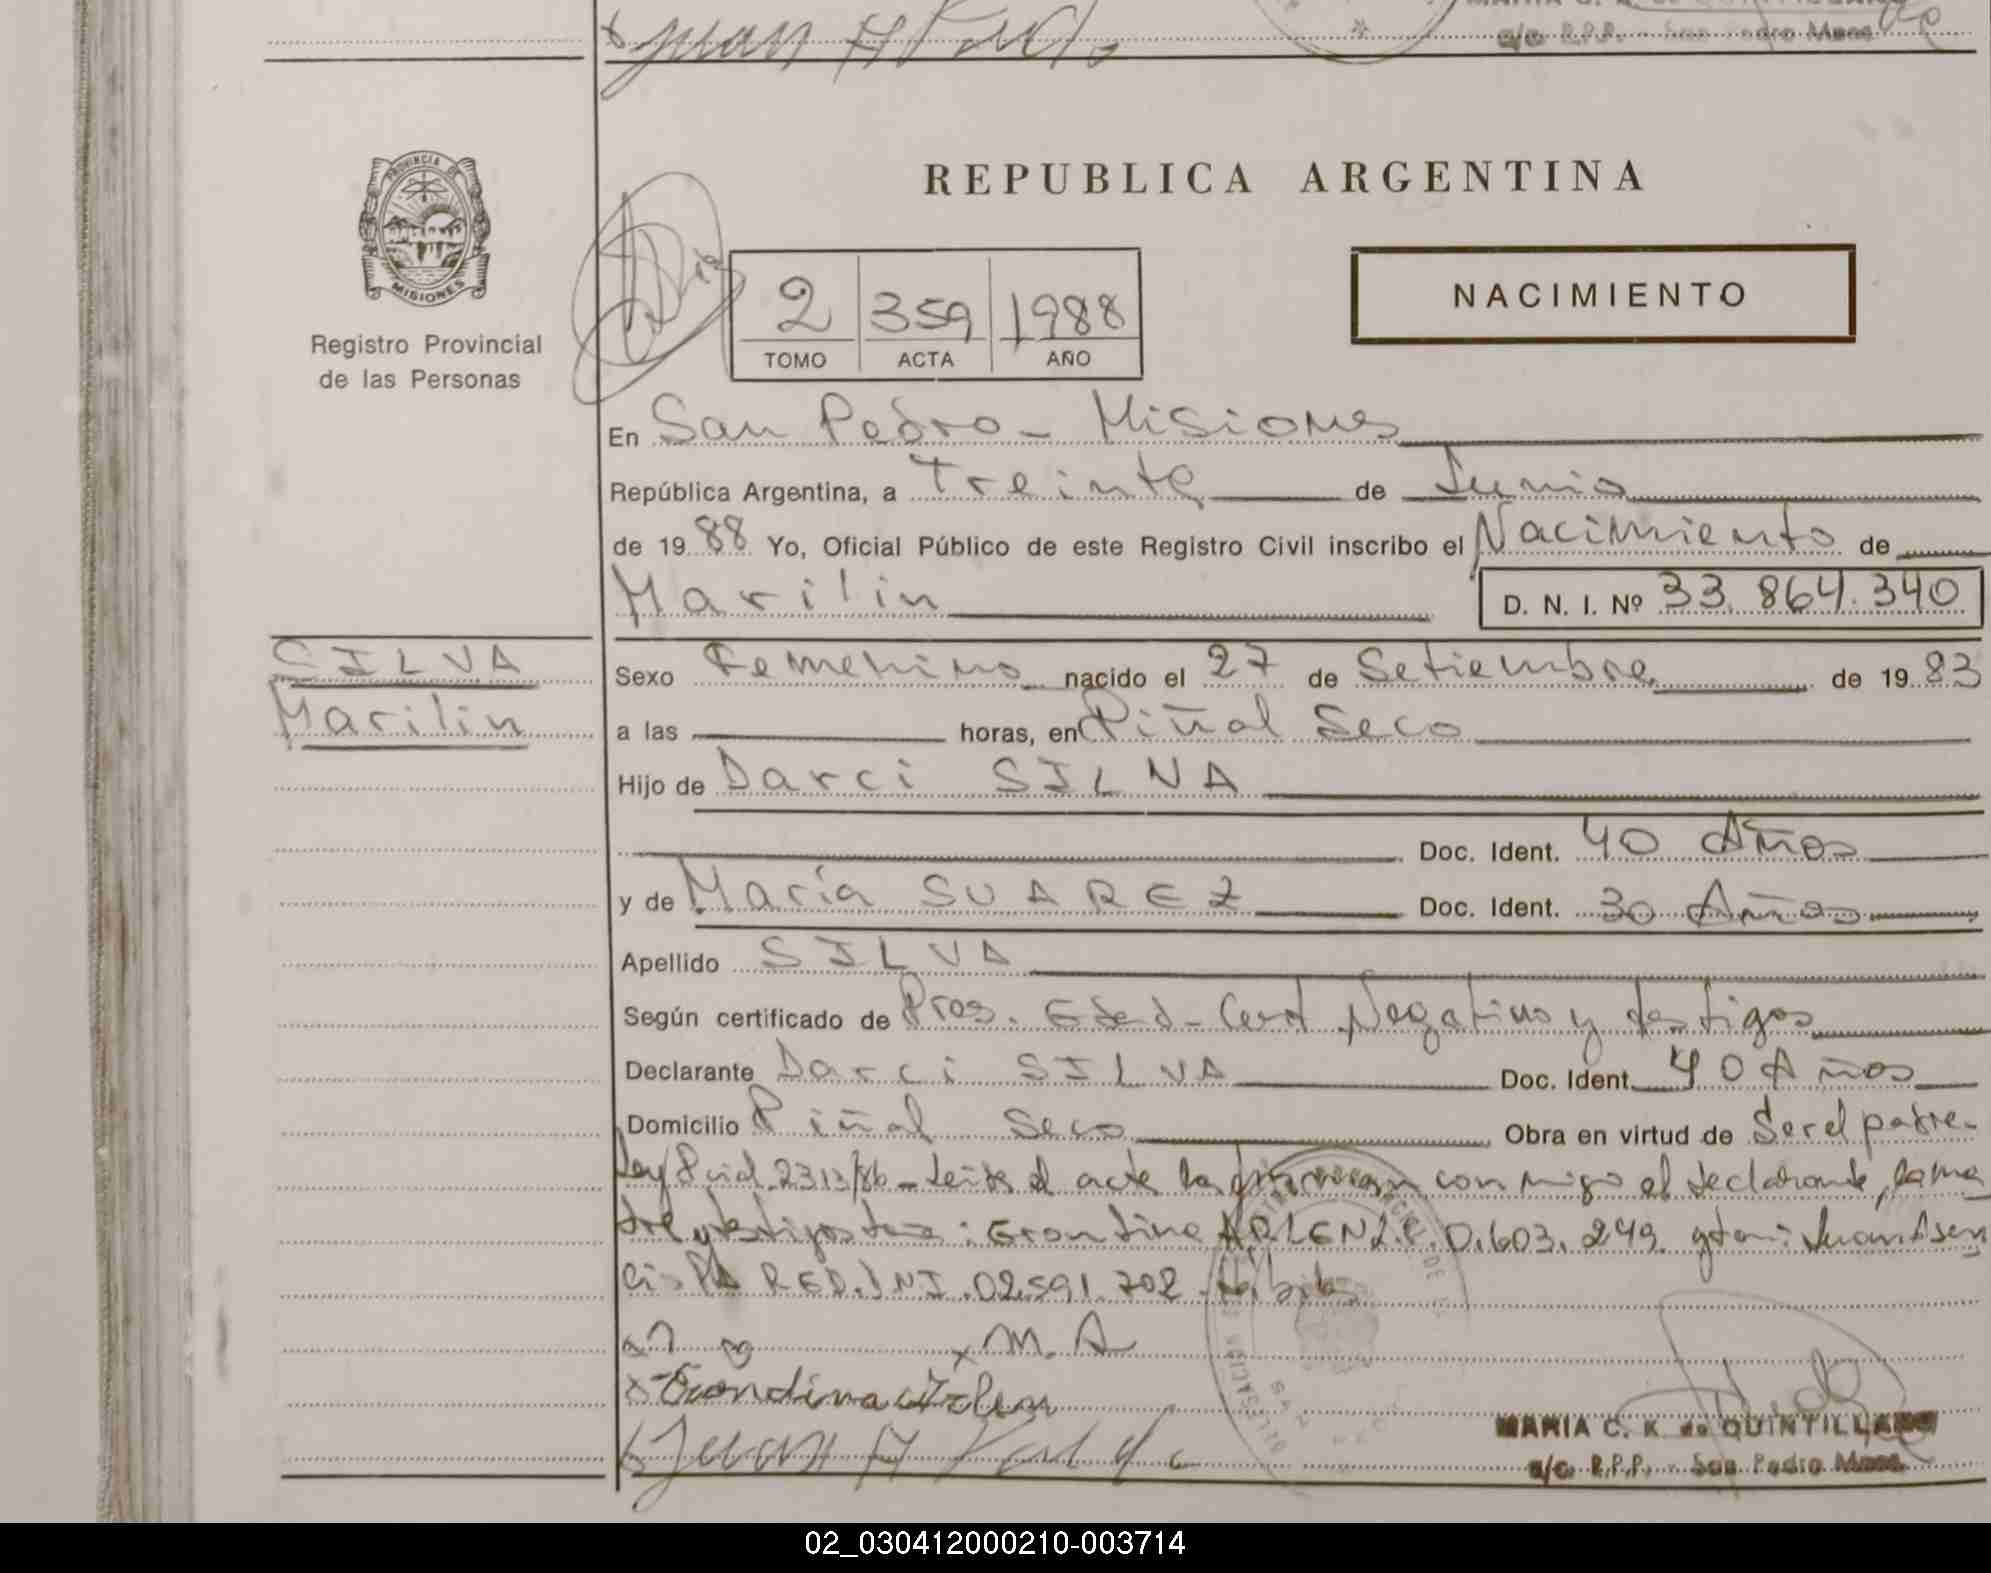 a/c R.P.P. - San Pedro Mnes.
PROVINCIA DE
MISIONES
Registro Provincial
de las Personas
REPUBLICA ARGENTINA
2 359 1988
TOMO ACTA AÑO
NACIMIENTO
En San Pedro - Misiones
República Argentina, a Treinta de Junio
de 19 88 Yo, Oficial Público de este Registro Civil inscribo el Nacimiento de
Marilin
D. N. I. Nº 33.864.340
SILVA
Marilin
Sexo Femenino nacido el 27 de Setiembre de 19 83
a las horas, en Piñal Seco
Hijo de Darci SILVA
Doc. Ident. 40 Años
y de María SUAREZ Doc. Ident. 30 Años
Apellido SILVA
Según certificado de Pres. Edad - Cert Negativo y testigos
Declarante Darci SILVA Doc. Ident. 40 Años
Domicilio Piñal Seco Obra en virtud de Ser el padre -
Ley 2313/86 - Leida el acta la firman con migo el declarante, la ma
dre y testigos : ARLEN 249 y Juan
RED.
x M. A
MARIA C. K. de QUINTILLANO
a/c. R.P.P. - San Pedro Mnes.
02_030412000210-003714